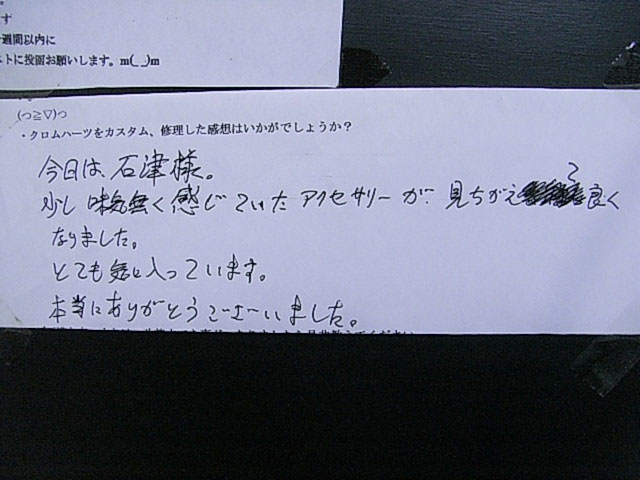 す
週間以内に
ストに投函お願いします。m(_ _)m
(っ≧∇)っ
・クロムハーツをカスタム、修理した感想はいかがでしょうか？
今日は、石津様。
少し味気無く感じていたアクセサリーが、見ちがえる良く
なりました。
とても気に入っています。
本当にありがとうございました。